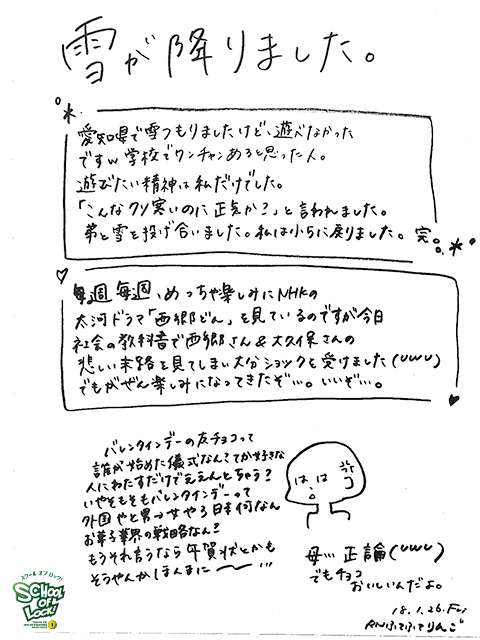 雪が降りました。
愛知県で雪つもりましたけど、遊べなかった
ですw 学校でワンチャンあると思った人。
遊びたい精神は私だけでした。
「こんなクソ寒いのに正気か?」と言われました。
弟と雪を投げ合いました。私は小5に戻りました。完。
毎週毎週、めっちゃ楽しみにNHKの
大河ドラマ「西郷どん」を見ているのですが今日
社会の教科書で西郷さん&大久保さんの
悲しい末路を見てしまい大分ショックを受けました(UWU)
でもがぜん楽しみになってきたぞ…。いいぞ…。
バレンタインデーの友チョコって
誰が始めた儀式なん?てか好きな
人にわたすだけでええんとちゃう?
いやそもそもバレンタインデーって
外国やと男→女やろ日本何なん
お菓子業界の戦略なん?
もうそれ言うなら年賀状とかも
そうやんかほんまに〜…
はは
母… 正論(UWU)
でもチョコ
おいしいんだよ。
18.1.26.Fri
RNふでふでりんご
スクール オブ ロック!
SCHOOL OF LOCK!